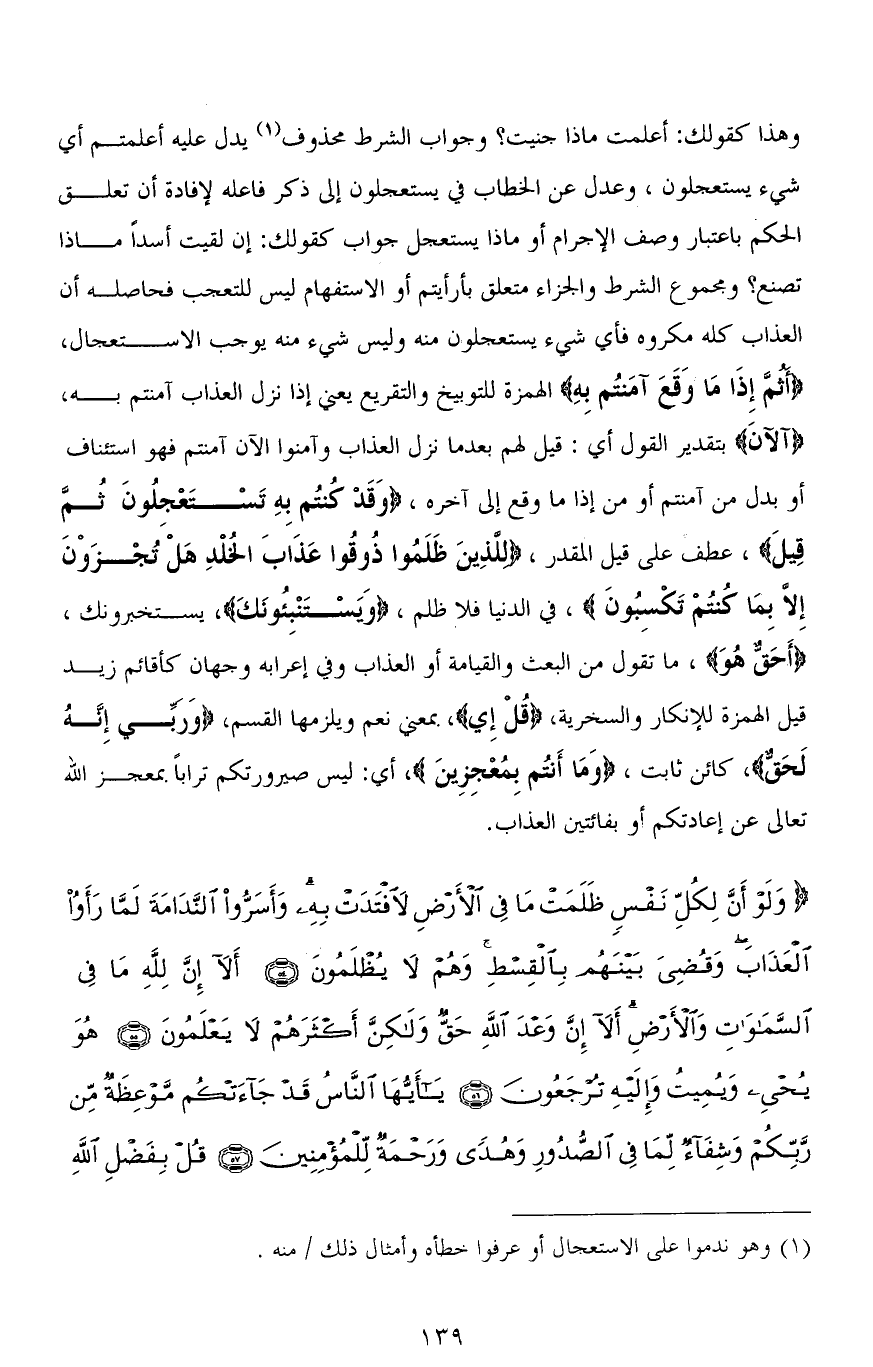 وهذا كقولك: أعلمت ماذا جنيت؟ وجواب الشرط محذوف(١) يدل عليه أعلمتم أي
شيء يستعجلون ، وعدل عن الخطاب في يستعجلون إلى ذكر فاعله لإفادة أن تعلق
الحكم باعتبار وصف الإجرام أو ماذا يستعجل جواب كقولك: إن لقيت أسداً ماذا
تصنع؟ ومجموع الشرط والجزاء متعلق بأرأيتم أو الاستفهام ليس للتعجب فحاصله أن
العذاب كله مكروه فأي شيء يستعجلون منه وليس شيء منه يوجب الاستعجال،
﴿أَثُمَّ إِذَا مَا وَقَعَ آمَنتُم بِهِ﴾ الهمزة للتوبيخ والتقريع يعني إذا نزل العذاب آمنتم به،
﴿آلآنَ﴾ بتقدير القول أي : قيل لهم بعدما نزل العذاب وآمنوا الآن آمنتم فهو استئناف
أو بدل من آمنتم أو من إذا ما وقع إلى آخره ، ﴿وَقَدْ كُنتُم بِهِ تَسْتَعْجِلُونَ ثُمَّ
قِيلَ﴾ ، عطف على قيل المقدر ، ﴿لِلَّذِينَ ظَلَمُوا ذُوقُوا عَذَابَ الخُلْدِ هَلْ تُجْزَوْنَ
إِلاَّ بِمَا كُنتُمْ تَكْسِبُونَ ﴾ ، في الدنيا فلا ظلم ، ﴿وَيَسْتَنْبِئُونَكَ﴾، يستخبرونك ،
﴿أَحَقٌّ هُوَ﴾ ، ما تقول من البعث والقيامة أو العذاب وفي إعرابه وجهان كأقائم زيد
قيل الهمزة للإنكار والسخرية، ﴿قُلْ إِي﴾، بمعني نعم ويلزمها القسم، ﴿وَرَبِّي إِنَّهُ
لَحَقٌّ﴾، كائن ثابت ، ﴿وَمَا أَنتُم بِمُعْجِزِينَ ﴾، أي: ليس صيرورتكم تراباً بمعجز الله
تعالى عن إعادتكم أو بفائتين العذاب.
﴿ وَلَوْ أَنَّ لِكُلِّ نَفْسٍ ظَلَمَتْ مَا فِى ٱلْأَرْضِ لَٱفْتَدَتْ بِهِۦ ۗ وَأَسَرُّوا۟ ٱلنَّدَامَةَ لَمَّا رَأَوُا۟
ٱلْعَذَابَ ۖ وَقُضِىَ بَيْنَهُم بِٱلْقِسْطِ ۚ وَهُمْ لَا يُظْلَمُونَ ۝٥٤ أَلَآ إِنَّ لِلَّهِ مَا فِى
ٱلسَّمَٰوَٰتِ وَٱلْأَرْضِ ۗ أَلَآ إِنَّ وَعْدَ ٱللَّهِ حَقٌّ وَلَٰكِنَّ أَكْثَرَهُمْ لَا يَعْلَمُونَ ۝٥٥ هُوَ
يُحْىِۦ وَيُمِيتُ وَإِلَيْهِ تُرْجَعُونَ ۝٥٦ يَٰٓأَيُّهَا ٱلنَّاسُ قَدْ جَآءَتْكُم مَّوْعِظَةٌ مِّن
رَّبِّكُمْ وَشِفَآءٌ لِّمَا فِى ٱلصُّدُورِ وَهُدًى وَرَحْمَةٌ لِّلْمُؤْمِنِينَ ۝٥٧ قُلْ بِفَضْلِ ٱللَّهِ
(١) وهو ندموا على الاستعجال أو عرفوا خطأه وأمثال ذلك / منه .
١٣٩